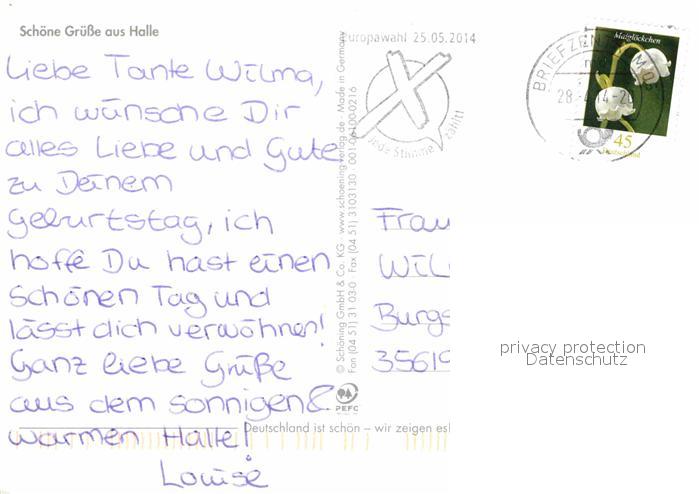 Schöne Grüße aus Halle
Liebe Tante Wilma,
ich wünsche Dir
alles Liebe und Gute
zu Deinem
Geburtstag, ich
hoffe Du hast einen
schönen Tag und
lässt dich verwöhnen!
Ganz liebe Grüße
aus dem sonnigen &
warmen Halle!
Louise
© Schöning GmbH & Co. KG · www.schoening-verlag.de · Made in Germany
Fon (04 51) 31 03-0 · Fax (04 51) 3103130 · 001-06100-0216
PEFC
Deutschland ist schön – wir zeigen es!
Europawahl 25.05.2014
Jede Stimme zählt!
BRIEFZEN
28.
14-20
Maiglöckchen
45
Deutschland
Frau
WIL
Burgs
35619
privacy protection
Datenschutz